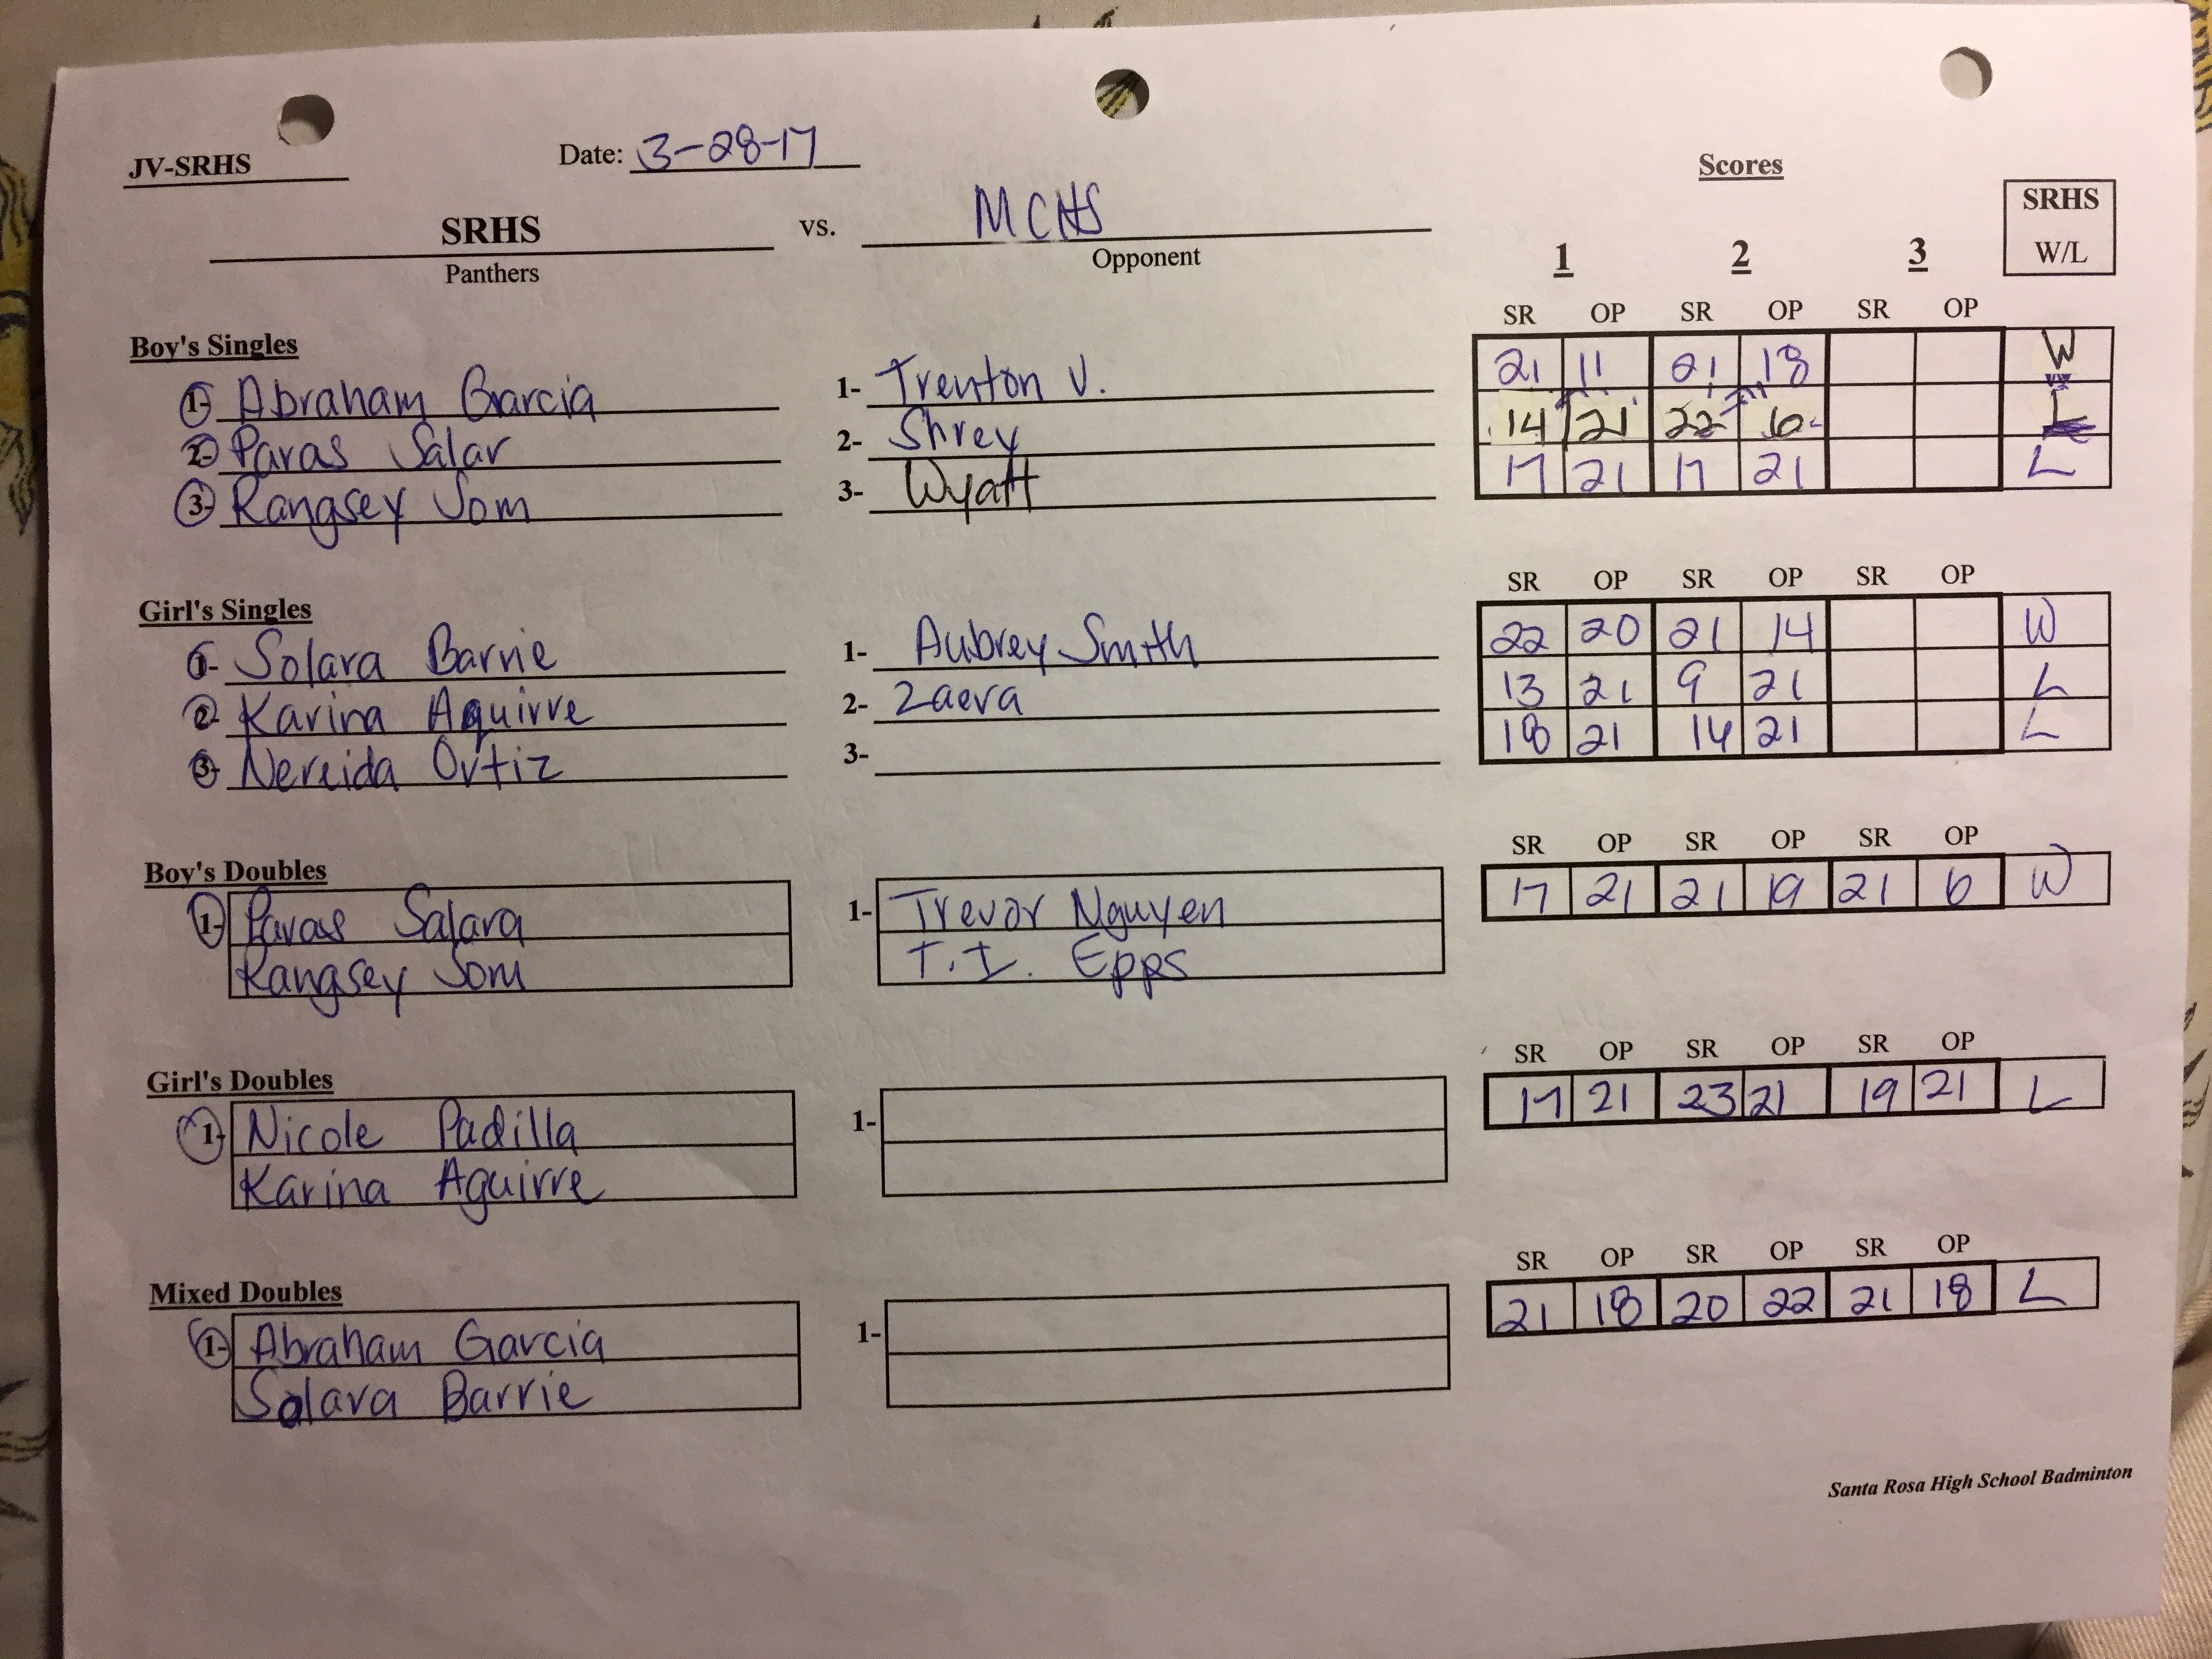 JV-SRHS Date: 3-28-17 Scores
SRHS vs. MCHS SRHS
Panthers Opponent 1 2 3 W/L
SR OP SR OP SR OP
Boy's Singles
1- Abraham Garcia 1- Trenton V. 21 11 21 18 W
2- Paras Salar 2- Shrey 14 21 22 L
3- Rangsey Som 3- Wyatt 17 21 17 21 L
SR OP SR OP SR OP
Girl's Singles
1- Solara Barrie 1- Aubrey Smith 22 20 21 14 W
2- Karina Aguirre 2- Zaera 13 21 9 21 L
3- Nereida Ortiz 3- 18 21 14 21 L
SR OP SR OP SR OP
Boy's Doubles
1- Paras Salara 1- Trevor Nguyen 17 21 21 19 21 6 W
Rangsey Som T.I. Epps
SR OP SR OP SR OP
Girl's Doubles
1- Nicole Padilla 1- 17 21 23 21 19 21 L
Karina Aguirre
SR OP SR OP SR OP
Mixed Doubles
1- Abraham Garcia 1- 21 18 20 22 21 18 L
Solara Barrie
Santa Rosa High School Badminton